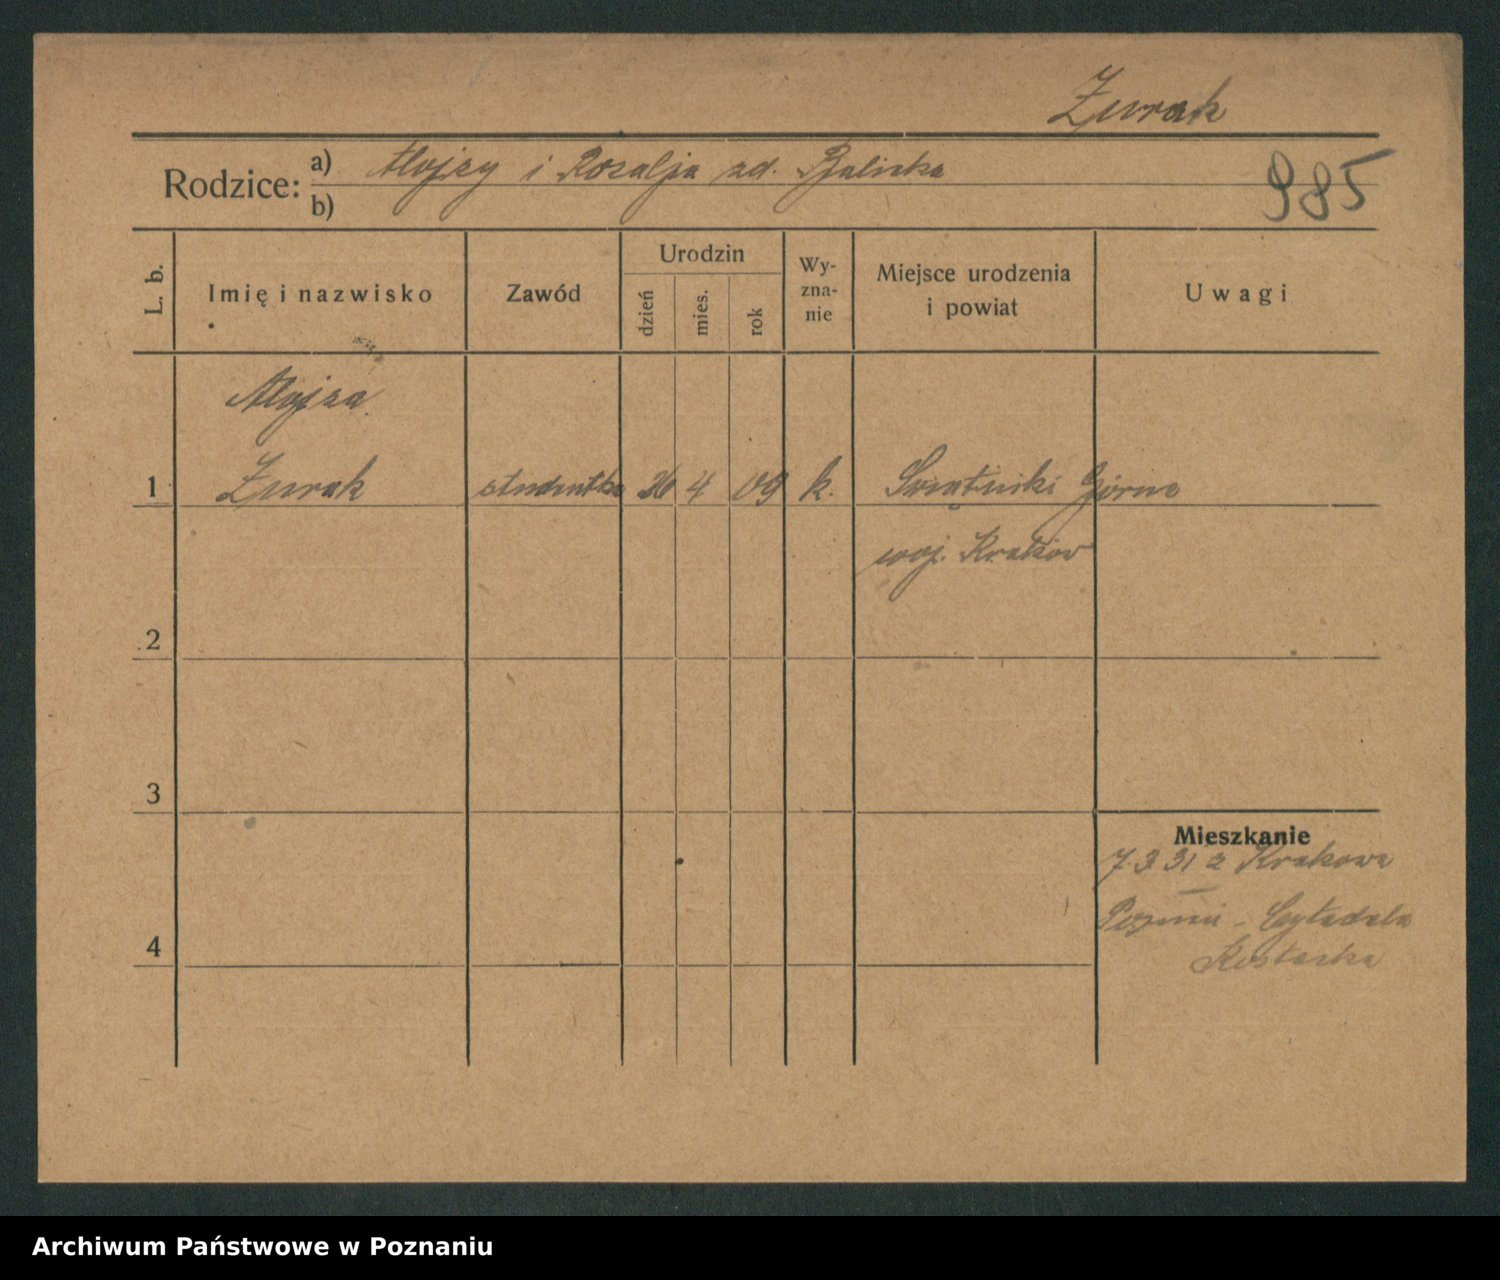 Żurak
Rodzice: a) Alojzy i Rozalja zd. Balicka
b)
985
L. b.
Imię i nazwisko
Zawód
Urodzin
dzień
mies.
rok
Wy-
zna-
nie
Miejsce urodzenia
i powiat
Uwagi
Alojza
1 Żurak studentka 26 4 09 k. Świątniki Górne
woj. Kraków
2
3
Mieszkanie
7.3.31 z Krakowa
Poznań - Cytadela
4
Archiwum Państwowe w Poznaniu